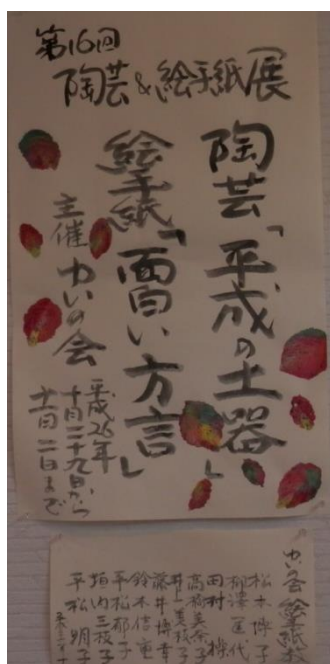 第16回
陶芸&絵手紙展
陶芸「平成の土器」
絵手紙「面白い方言」
主催 ゆいの会
平成26年
十月二十九日から
十一月二日まで
ゆいの会 絵手紙
松本博子
柳澤匡代
田村操
高橋美奈子
井上美枝子
藤井博幸
鈴木信重
平松郁子
垣内三枝子
平松明子